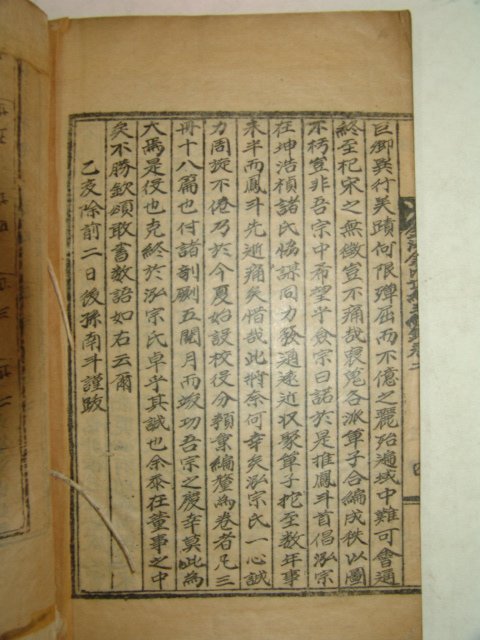 巨卿異行美蹟何限殫屈而不億之麗殆遍域中難可會通
終至杞宋之無徵豈不痛哉裒蒐各派單子合編成秩以圖
不朽豈非吾宗中希望乎僉宗曰諾於是推鳳斗首倡泓宗
在坤浩楨諸氏協謀同力發通遠近收聚單子挖至數年事
未半而鳳斗先逝痛矣惜哉此將奈何幸矣泓宗氏一心誠
力周旋不倦乃於今夏始設校役分類彙編釐為卷者凡三
冊十八篇也付諸剞劂五閱月而竣功吾宗之慶幸莫此為
大焉是役也克終於泓宗氏卓乎其誠也余忝在董事之中
矣不勝欽頌敢書數語如右云爾
乙亥除前二日後孫南斗謹跋